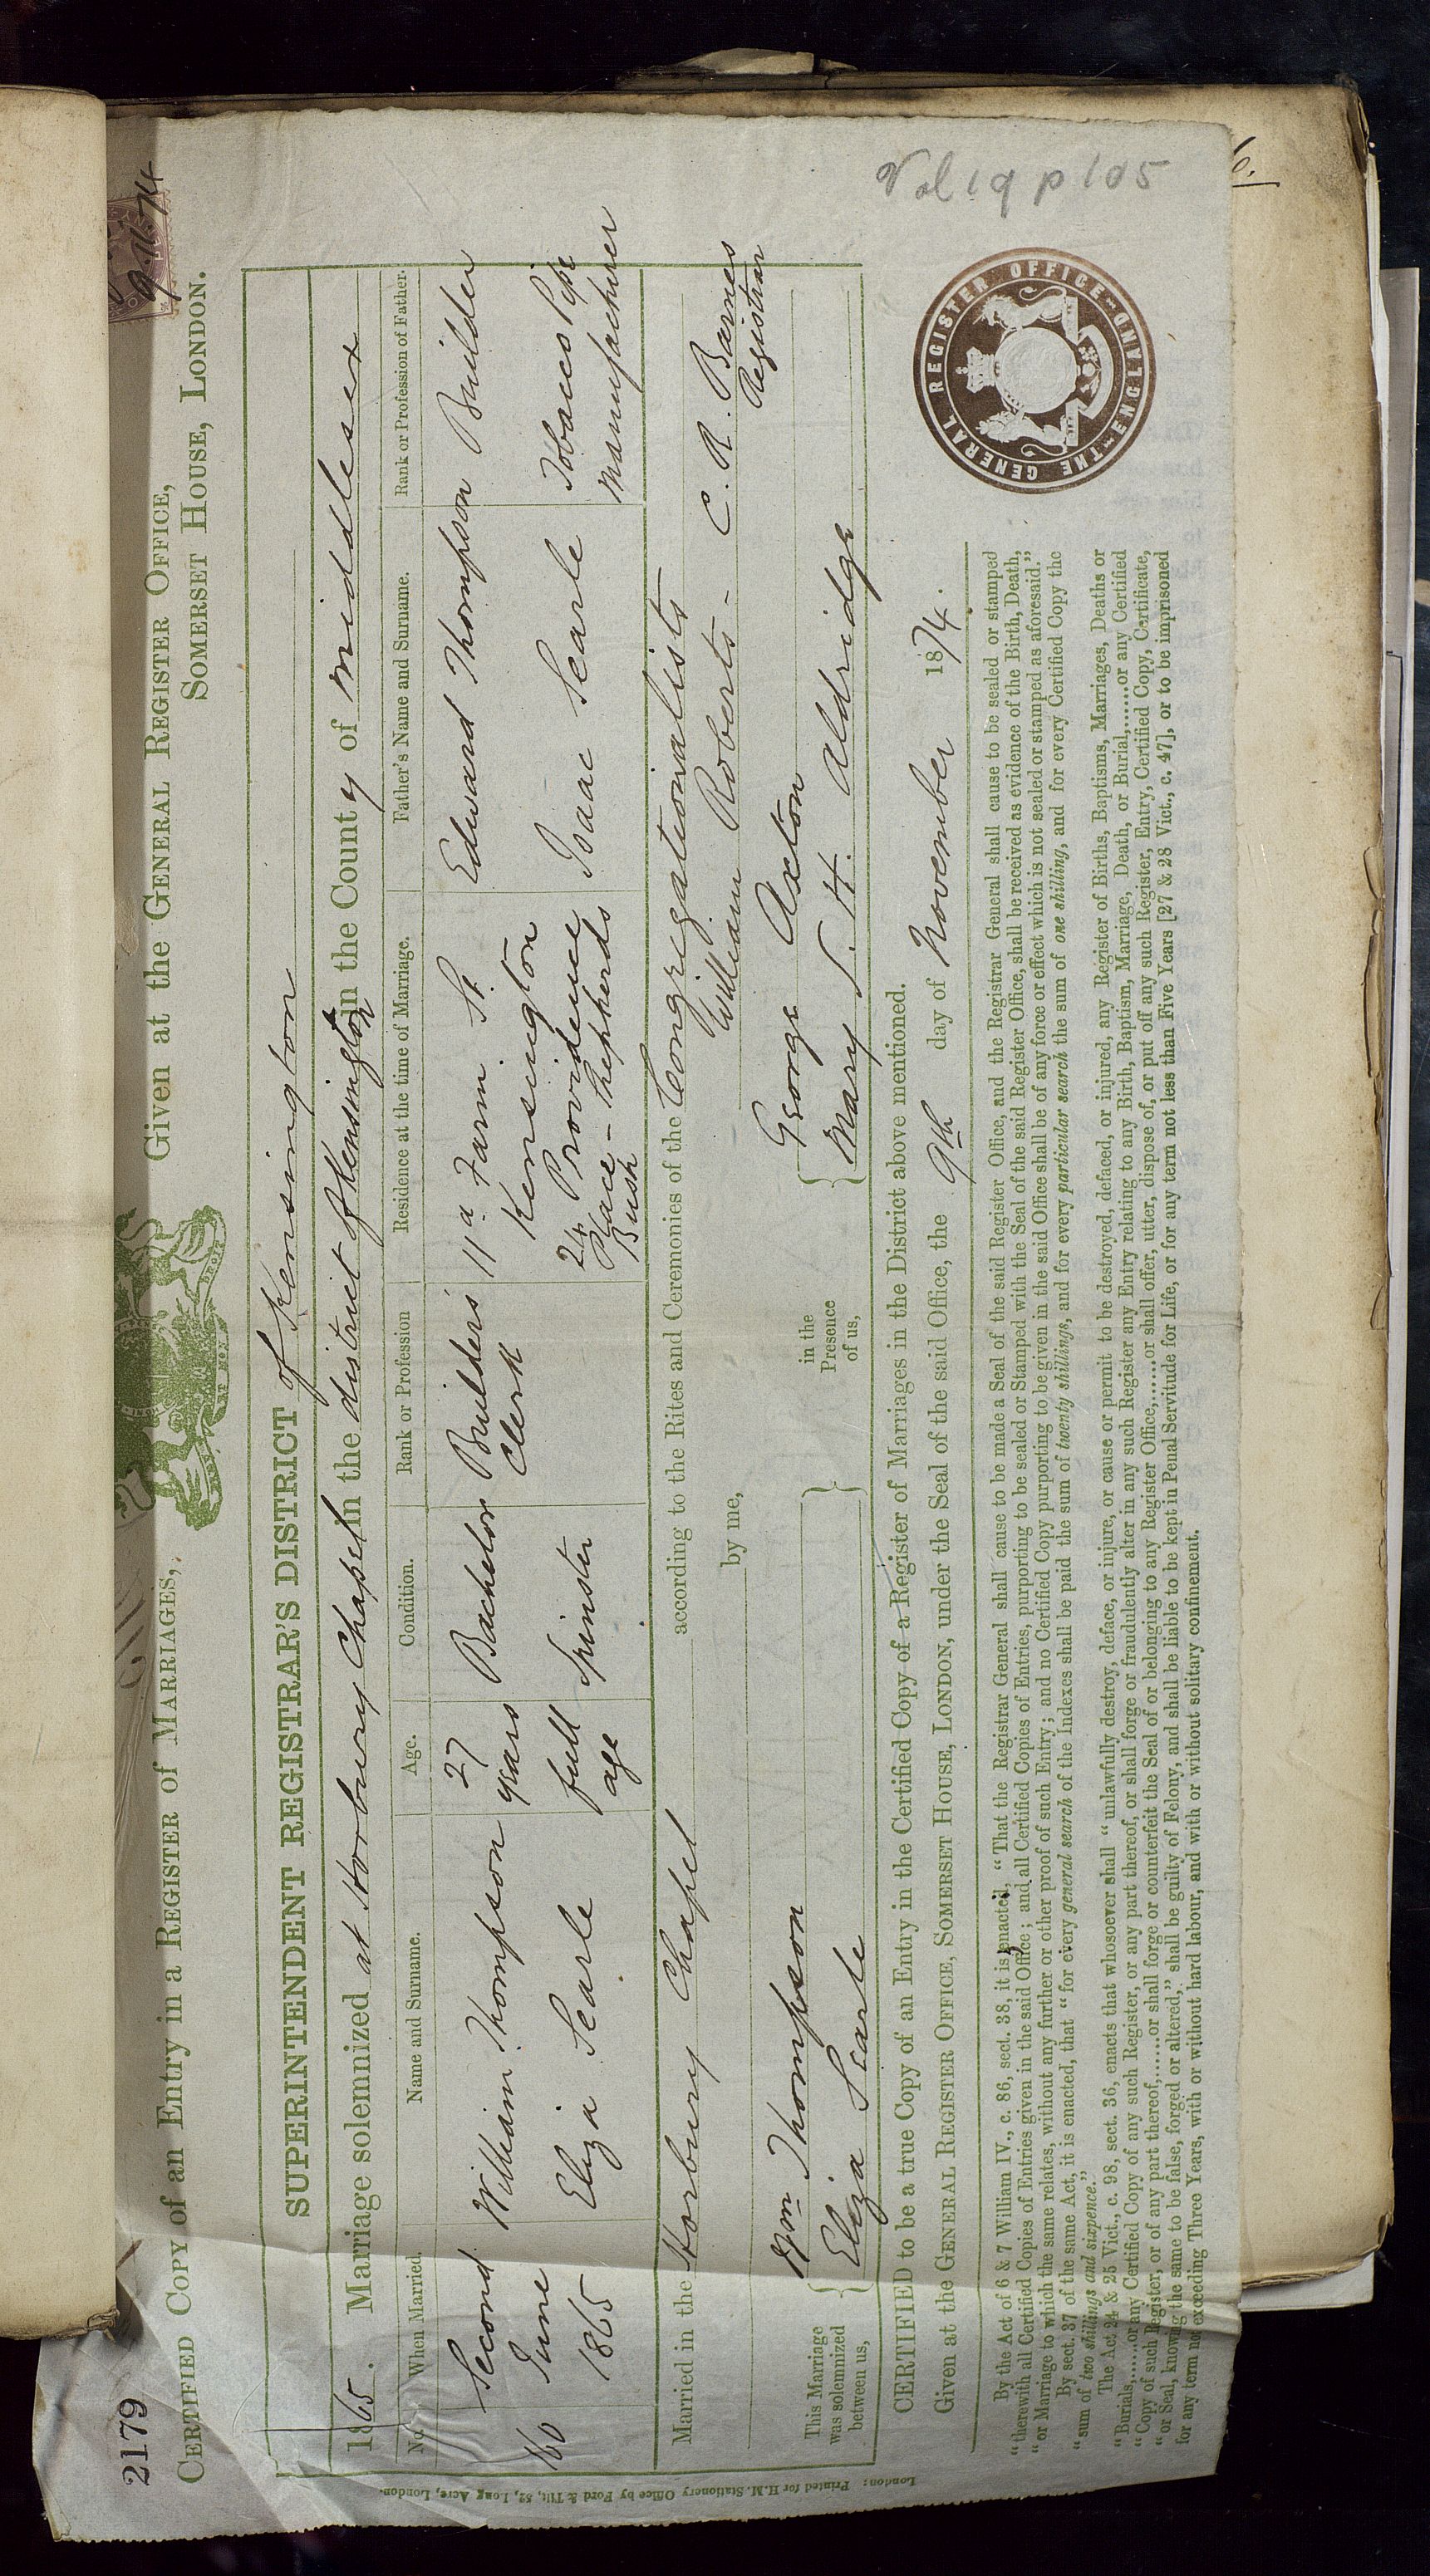 2179
9.11.74
CERTIFIED COPY of an Entry in a REGISTER of MARRIAGES, Given at the GENERAL REGISTER OFFICE,
SOMERSET HOUSE, LONDON.
SUPERINTENDENT REGISTRAR'S DISTRICT of Kensington
1865. Marriage solemnized at Horbury Chapel in the district of Kensington in the County of Middlesex
No. When Married. Name and Surname. Age. Condition. Rank or Profession Residence at the time of Marriage. Father's Name and Surname. Rank or Profession of Father.
160 Second June 1865 William Thompson 27 years Bachelor Builders Clerk 11a Farm St. Kensington Edward Thompson Builder
Eliza Searle full age Spinster 24 Providence Place - Shepherds Bush Isaac Searle Tobacco Pipe Manufacturer
Married in the Horbury Chapel according to the Rites and Ceremonies of the Congregationalists
by me, William Roberts - C. R. Barnes Registrar
This Marriage was solemnized between us, Wm Thompson Eliza Searle in the Presence of us, George Axton Mary S. H. Aldridge
CERTIFIED to be a true Copy of an Entry in the Certified Copy of a Register of Marriages in the District above mentioned.
Given at the GENERAL REGISTER OFFICE, SOMERSET HOUSE, LONDON, under the Seal of the said Office, the 9th day of November 1874.
By the Act of 6 & 7 William IV., c. 86, sect. 38, it is enacted, "That the Registrar General shall cause to be made a Seal of the said Register Office, and the Registrar General shall cause to be sealed or stamped
"therewith all Certified Copies of Entries given in the said Office; and all Certified Copies of Entries, purporting to be sealed or Stamped with the Seal of the said Register Office, shall be received as evidence of the Birth, Death,
"or Marriage to which the same relates, without any further or other proof of such Entry; and no Certified Copy purporting to be given in the said Office shall be of any force or effect which is not sealed or stamped as aforesaid."
By sect. 37 of the same Act, it is enacted, that "for every general search of the Indexes shall be paid the sum of twenty shillings, and for every particular search the sum of one shilling, and for every Certified Copy the
"sum of two shillings and sixpence."
The Act 24 & 25 Vict., c. 98, sect. 36, enacts that whosoever shall "unlawfully destroy, deface, or injure, or cause or permit to be destroyed, defaced, or injured, any Register of Births, Baptisms, Marriages, Deaths or
"Burials,......or any Certified Copy of any such Register, or any part thereof, or shall forge or fraudulently alter in any such Register any Entry relating to any Birth, Baptism, Marriage, Death, or Burial,......or any Certified
"Copy of such Register, or of any part thereof,......or shall forge or counterfeit the Seal of or belonging to any Register Office,......or shall offer, utter, dispose of, or put off any such Register, Entry, Certified Copy, Certificate,
"or Seal, knowing the same to be false, forged or altered," shall be guilty of Felony, and shall be liable to be kept in Penal Servitude for Life, or for any term not less than Five Years [27 & 28 Vict., c. 47], or to be imprisoned
for any term not exceeding Three Years, with or without hard labour, and with or without solitary confinement.
THE GENERAL REGISTER OFFICE ENGLAND
London: Printed for H.M. Stationery Office by Ford & Tilt, 52, Long Acre, London.
Vol 19 p 105
6.